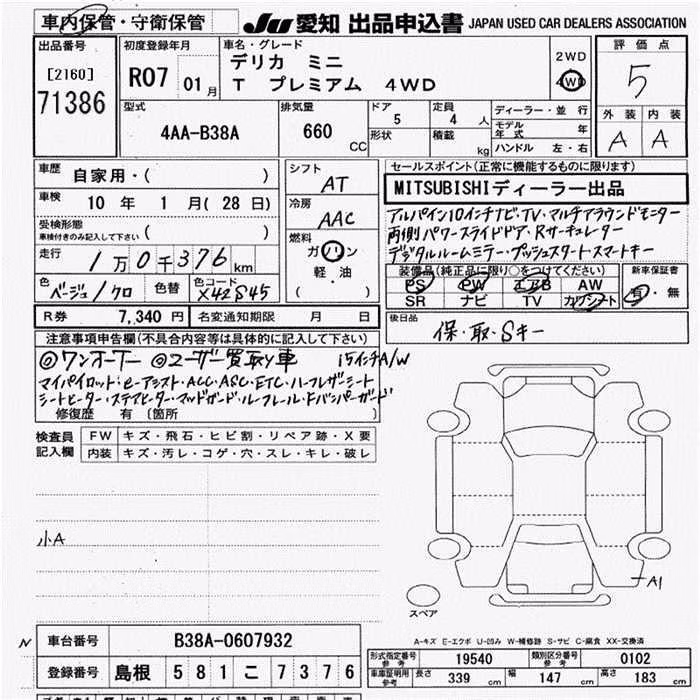 車内保管・守衛保管
JU 愛知 出品申込書 JAPAN USED CAR DEALERS ASSOCIATION
出品番号 [2160] 71386
初度登録年月 R07 01月
車名・グレード デリカ ミニ
T プレミアム 4WD
2WD
4WD
評価点 5
外装 内装
A A
型式 4AA-B38A
排気量 660 CC
ドア 5
形状
定員 4人
積載 kg
ディーラー・並行
モデル年式 年
ハンドル 左・右
車歴 自家用・( )
車検 10年 1月(28日)
受検形態 ( )
車検付きのみ記入して下さい
走行 1万0千376km
色 ベージュ/クロ 色替 色コード X42S45
シフト AT
冷房 AAC
燃料 ガソリン
軽・油
( )
セールスポイント(正常に機能するものに限ります)
MITSUBISHIディーラー出品
アルパイン10インチナビ・TV・マルチアラウンドモニター
両側パワースライドドア・Rサーキュレーター
デジタルルームミラー・プッシュスタート・スマートキー
装備品(純正品に限り○をつけてください)
PS PW エアB AW
SR ナビ TV カワシート
新車保証書
有・無
R券 7,340円 名変通知期限 月 日
後日品 保・取・Sキー
注意事項申告欄(不具合内容等は具体的に記入して下さい)
◎ワンオーナー ◎ユーザー買取り車 15インチA/W
マイパイロット・e-アシスト・ACC・ASC・ETC・ハーフレザーシート
シートヒーター・ステアヒーター・マッドガード・ルーフレール・Fバンパーガード
修復歴 有 〔箇所 〕
検査員記入欄
FW キズ・飛石・ヒビ割・リペア跡・X要
内装 キズ・汚レ・コゲ・穴・スレ・キレ・破レ
小A
A1
スペア
A-キズ E-エクボ U-凹み W-補修跡 S-サビ C-腐食 XX-交換済
N 車台番号 B38A-0607932
登録番号 島根 581 こ 7376
形式指定番号 参考 19540 類別区分番号 参考 0102
車庫証明用 参考 長さ 339cm 幅 147cm 高さ 183cm